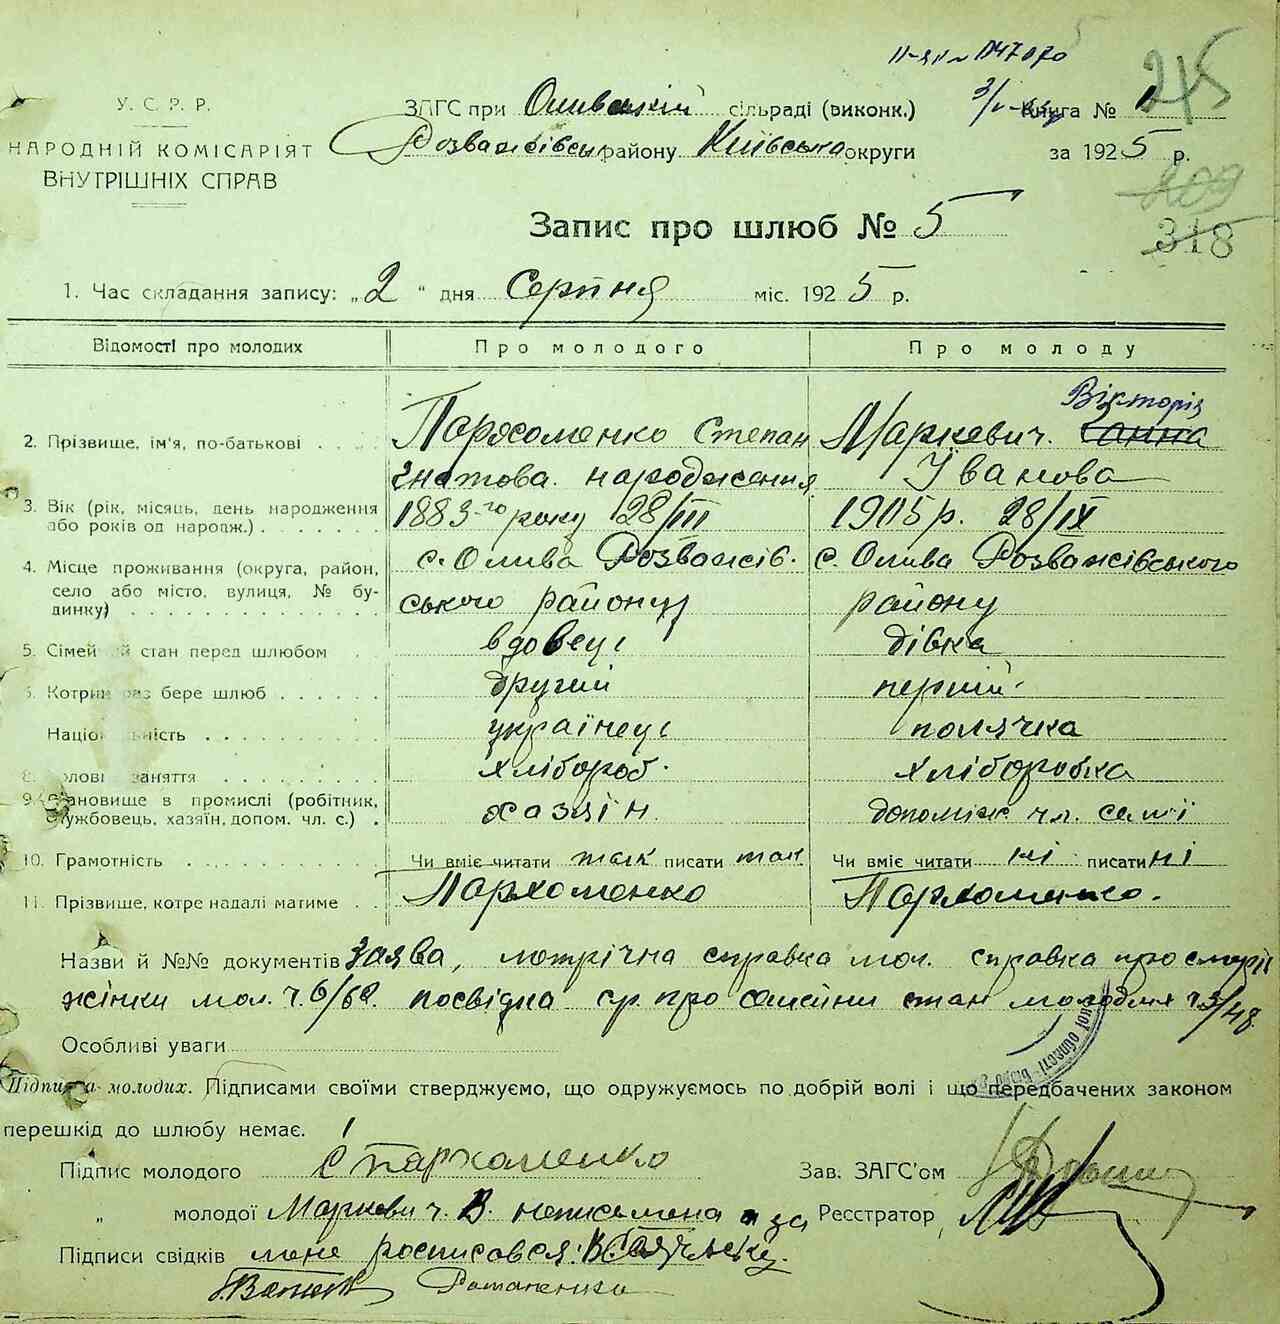 У. С. Р. Р.
НАРОДНІЙ КОМІСАРІЯТ
ВНУТРІШНІХ СПРАВ
ЗАГС при Оливській сільраді (виконк.)
Розважівськ району Київська округи
Книга № 1
за 1925 р.
215
209
318
Запис про шлюб № 5
1. Час складання запису: „2“ дня Серпня міс. 1925 р.
Відомості про молодих Про молодого Про молоду
Вікторія
2. Прізвище, ім'я, по-батькові Пархоменко Степан Маркевич. Ганна
Гнатова. народження Іванова
3. Вік (рік, місяць, день народження або років од народж.) 1883-го року 28/III 1905 р. 28/IX
4. Місце проживання (округа, район, село або місто, вулиця, № будинку) с. Олива Розважівського району с. Олива Розважівського району
5. Сімейний стан перед шлюбом вдовець дівка
6. Котрий раз бере шлюб другий перший
Національність українець полячка
8. Голові заняття хлібороб. хліборобка
9. Становище в промислі (робітник, службовець, хазяїн, допом. чл. с.) хазяїн. допоміж чл. семї
10. Грамотність Чи вміє читати так писати так Чи вміє читати ні писати ні
11. Прізвище, котре надалі матиме Пархоменко Пархоменко.
Назви й №№ документів Заява, метрічна справка мол. справка про смерть
жінки мол. ч. 6/62. посвідка ср. про семейни стан молодих ч. 5/48
Особливі уваги
Підписка молодих. Підписами своїми стверджуємо, що одружуємось по добрій волі і що передбачених законом
перешкід до шлюбу немає.
Підпис молодого С Пархоменко Зав. ЗАГС'ом
„ молодої Маркевич. В. неписмена а за Реєстратор
Підписи свідків мене росписовся:
Романенко